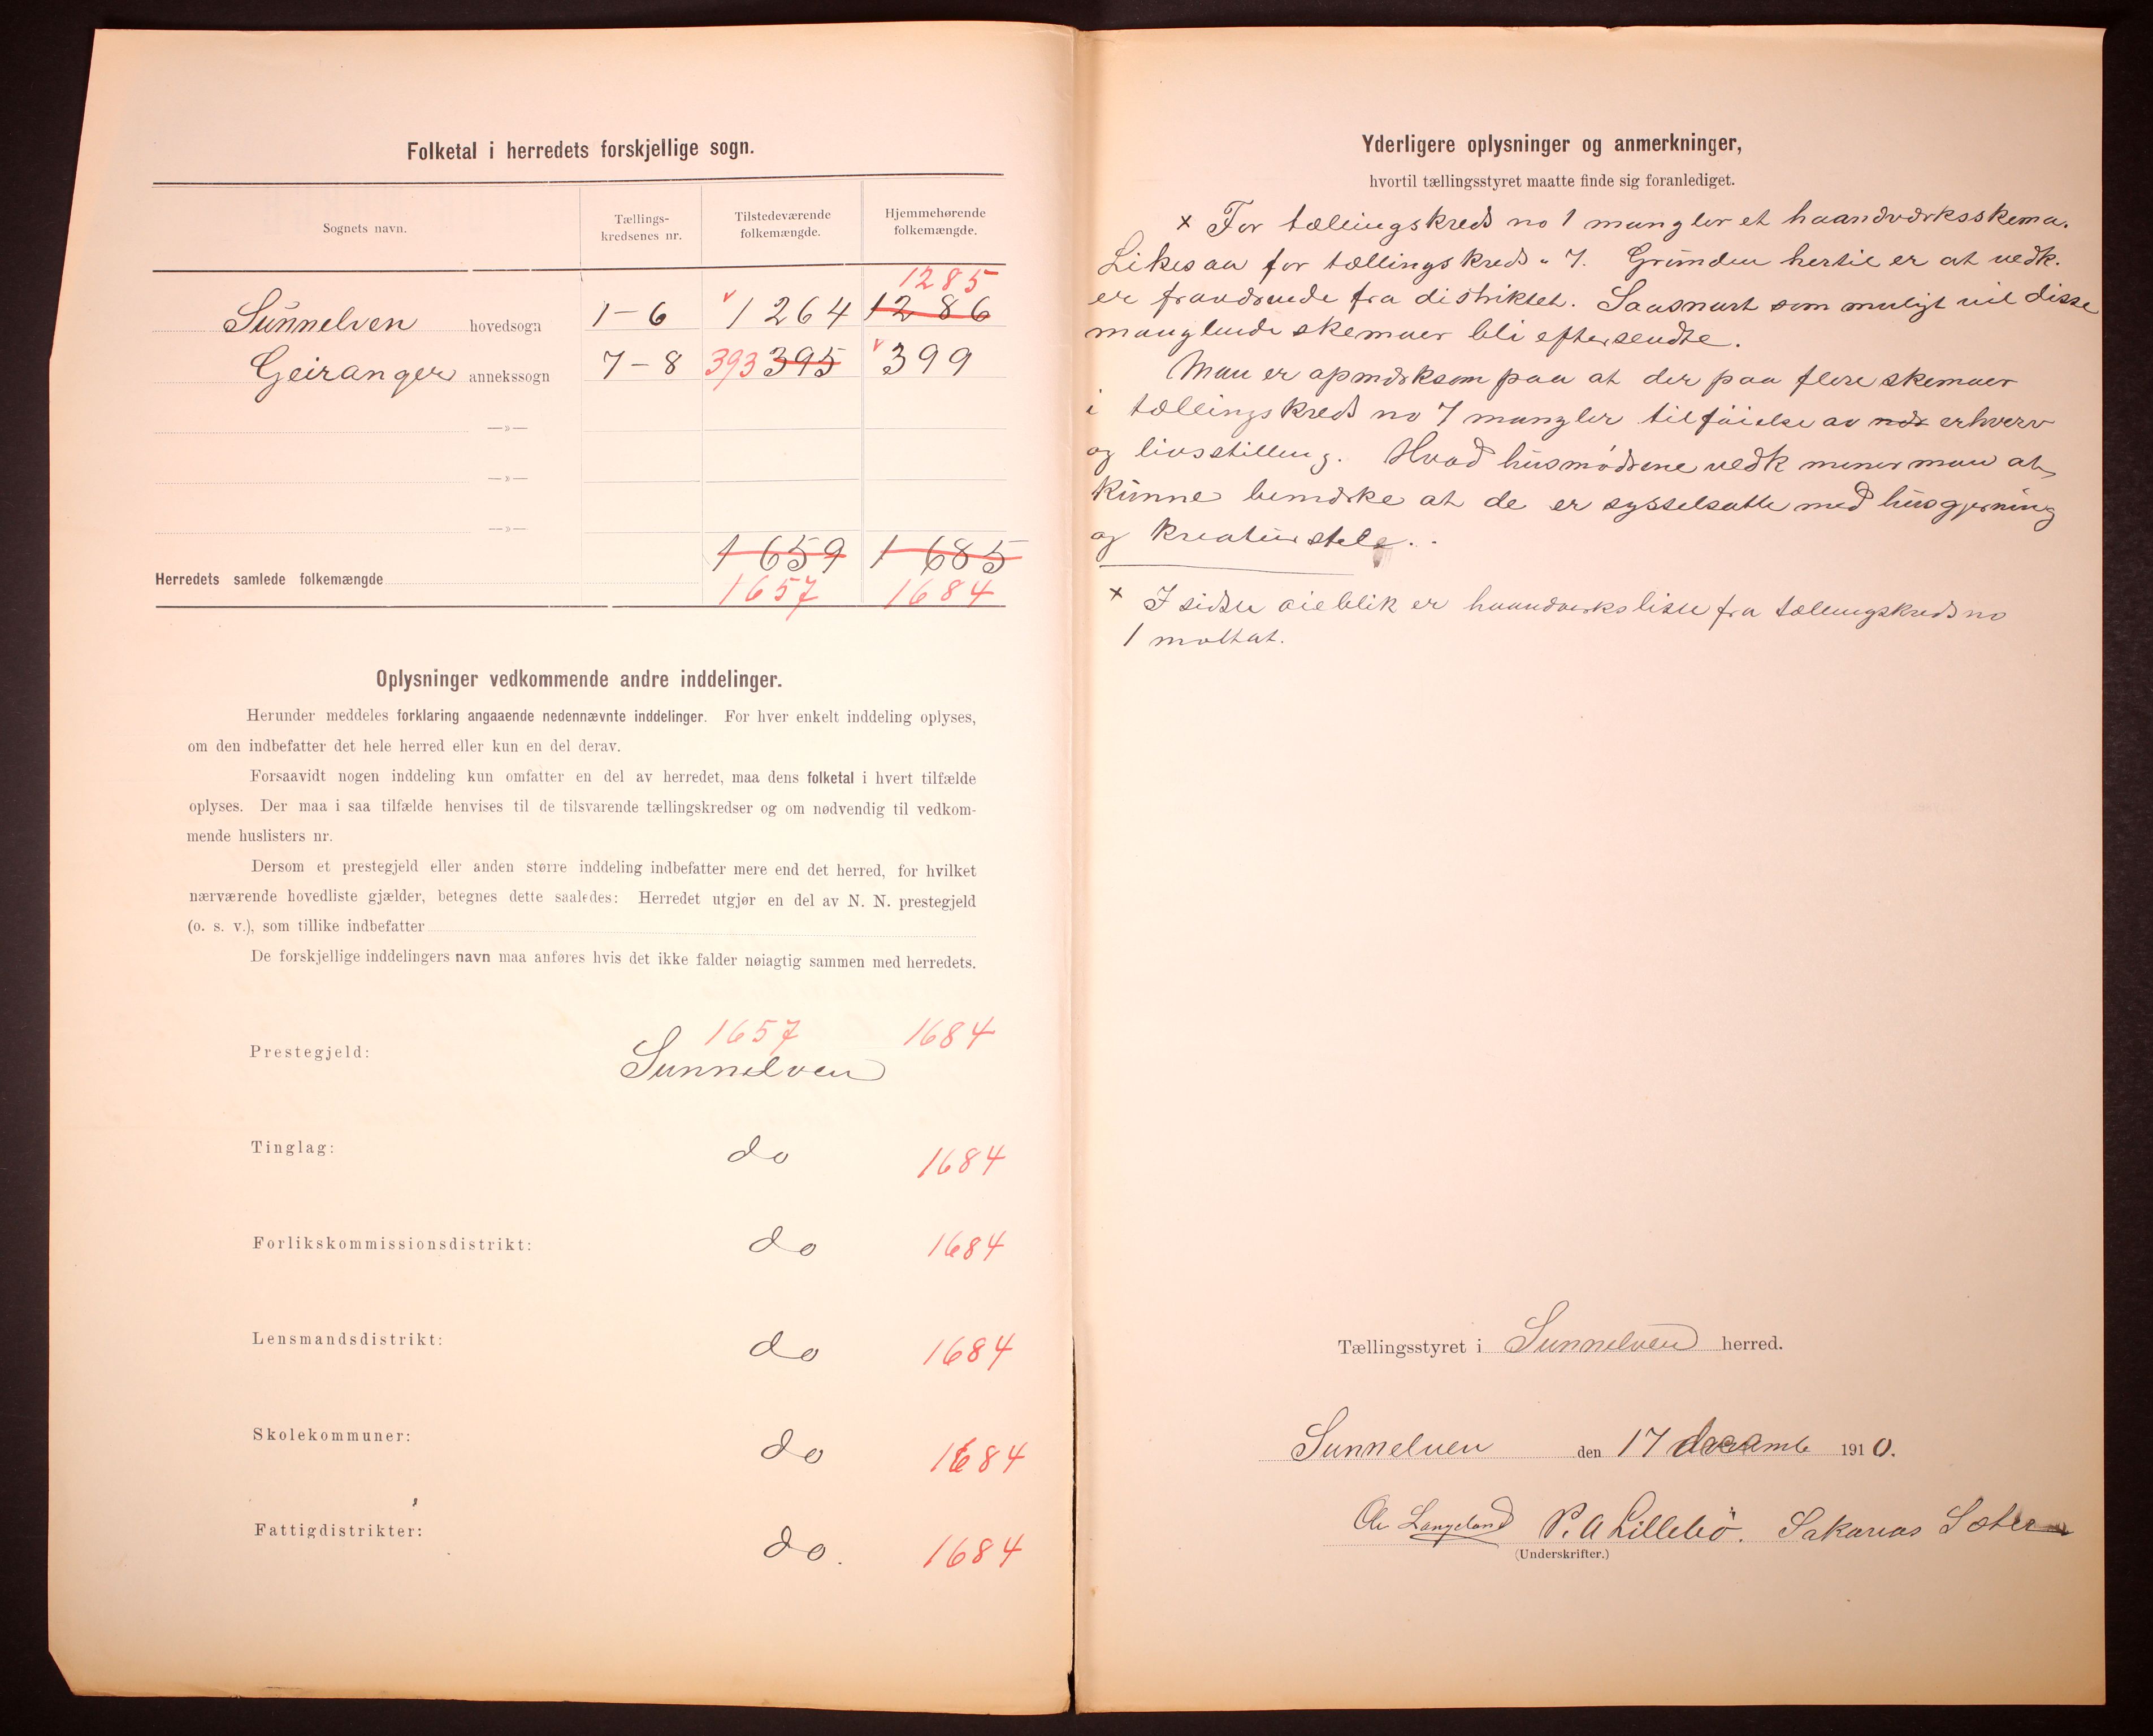 Folketal i herredets forskjellige sogn.
Sognets navn. Tællings-kredsenes nr. Tilstedeværende folkemængde. Hjemmehørende folkemængde.
1285
Sunnelven hovedsogn 1-6 v 1264 1286
Geiranger annekssogn 7-8 393 395 v 399
—»—
—»—
—»—
1659 1685
Herredets samlede folkemængde
1657 1684
Oplysninger vedkommende andre inddelinger.
Herunder meddeles forklaring angaaende nedennævnte inddelinger. For hver enkelt inddeling oplyses,
om den indbefatter det hele herred eller kun en del derav.
Forsaavidt nogen inddeling kun omfatter en del av herredet, maa dens folketal i hvert tilfælde
oplyses. Der maa i saa tilfælde henvises til de tilsvarende tællingskredser og om nødvendig til vedkom-
mende huslisters nr.
Dersom et prestegjeld eller anden større inddeling indbefatter mere end det herred, for hvilket
nærværende hovedliste gjælder, betegnes dette saaledes: Herredet utgjør en del av N. N. prestegjeld
(o. s. v.), som tillike indbefatter
De forskjellige inddelingers navn maa anføres hvis det ikke falder nøiagtig sammen med herredets.
1657 1684
Prestegjeld: Sunnelven
Tinglag: do 1684
Forlikskommissionsdistrikt: do 1684
Lensmandsdistrikt: do 1684
Skolekommuner: do 1684
Fattigdistrikter: do. 1684
Yderligere oplysninger og anmerkninger,
hvortil tællingsstyret maatte finde sig foranlediget.
x For tællingskreds no 1 mangler et haandværksskema.
Likesaa for tællingskreds " 7. Grunden hertil er at vedk.
er fraværende fra distriktet. Saasnart som muligt vil disse
manglende skemaer bli eftersendte.
Man er opmærksom paa at der paa flere skemaer
i tællingskreds no 7 mangler tilføielse av erhverv
og livsstilling. Hvad husmødrene vedk mener man at
kunne bemærke at de er sysselsatte med husgjerning
og kreaturstel.
x I sidste øieblik er haandverksliste fra tællingskreds no
1 mottat.
Tællingsstyret i Sunnelven herred.
Sunnelven den 17 decemb 1910.
Ole Langeland P. A Lillebø. Sakarias Sæter
(Underskrifter.)